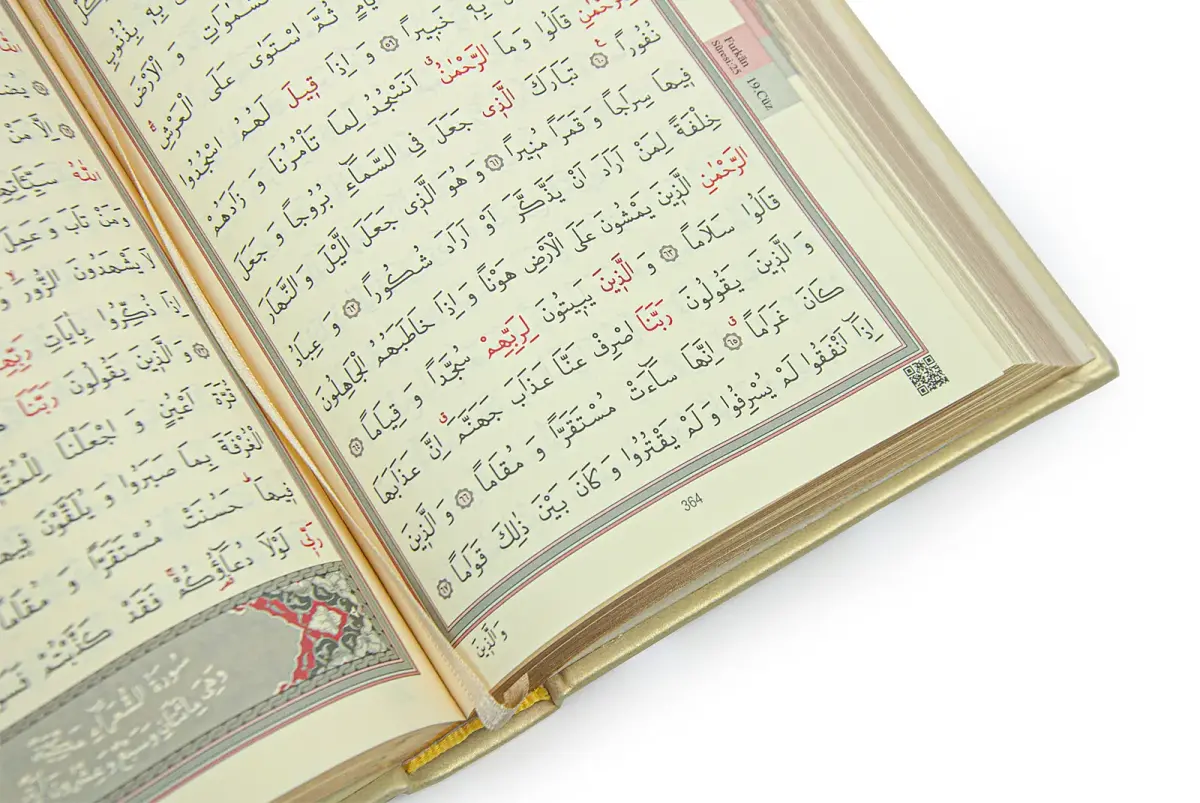 Furkân
Sûresi:25
19.Cüz
بِه۪ بِذُنُوبِ
السَّمٰوَاتِ وَ الْاَرْضَ
ثُمَّ اسْتَوٰى عَلَى الْعَرْشِ
بِه۪ خَب۪يراً ﴿٥٩﴾ وَ اِذَا ق۪يلَ لَهُمُ اسْجُدُوا
لِلرَّحْمٰنِ قَالُوا وَ مَا الرَّحْمٰنُ اَنَسْجُدُ لِمَا تَأْمُرُنَا وَ زَادَهُمْ
نُفُوراً ﴿٦٠﴾ تَبَارَكَ الَّذ۪ي جَعَلَ فِي السَّمَٓاءِ بُرُوجاً وَ جَعَلَ
ف۪يهَا سِرَاجاً وَ قَمَراً مُن۪يراً ﴿٦١﴾ وَ هُوَ الَّذ۪ي جَعَلَ الَّيْلَ وَ النَّهَارَ
خِلْفَةً لِمَنْ اَرَادَ اَنْ يَذَّكَّرَ اَوْ اَرَادَ شُكُوراً ﴿٦٢﴾ وَ عِبَادُ
الرَّحْمٰنِ الَّذ۪ينَ يَمْشُونَ عَلَى الْاَرْضِ هَوْناً وَ اِذَا خَاطَبَهُمُ الْجَاهِلُونَ
قَالُوا سَلَاماً ﴿٦٣﴾ وَ الَّذ۪ينَ يَب۪يتُونَ لِرَبِّهِمْ سُجَّداً وَ قِيَاماً ﴿٦٤﴾
وَ الَّذ۪ينَ يَقُولُونَ رَبَّنَا اصْرِفْ عَنَّا عَذَابَ جَهَنَّمَ اِنَّ عَذَابَهَا
كَانَ غَرَاماً ﴿٦٥﴾ اِنَّهَا سَٓاءَتْ مُسْتَقَرًّا وَ مُقَاماً ﴿٦٦﴾ وَ الَّذ۪ينَ
اِذَٓا اَنْفَقُوا لَمْ يُسْرِفُوا وَ لَمْ يَقْتُرُوا وَ كَانَ بَيْنَ ذٰلِكَ قَوَاماً ﴿٦٧﴾
364
وَ الَّذ۪ينَ
اِلَّا مَنْ
اللّٰهُ سَيِّـَٔاتِهِمْ
وَمَنْ تَابَ وَ عَمِلَ
لَا يَشْهَدُونَ الزُّورَ
اِذَا ذُكِّرُوا بِاٰيَاتِ رَبِّهِمْ
وَ الَّذ۪ينَ يَقُولُونَ رَبَّنَا
قُرَّةَ اَعْيُنٍ وَ اجْعَلْنَا لِلْمُتَّق۪ينَ
الْغُرْفَةَ بِمَا صَبَرُوا وَ يُلَقَّوْنَ ف۪يهَا
ف۪يهَا حَسُنَتْ مُسْتَقَرًّا وَ مُقَاماً
رَبّ۪ي لَوْلَا دُعَٓاؤُ۬كُمْ فَقَدْ كَذَّبْتُمْ فَسَوْفَ
سُورَةُ الشُّعَرَٓاءِ مَكِّيَّةٌ